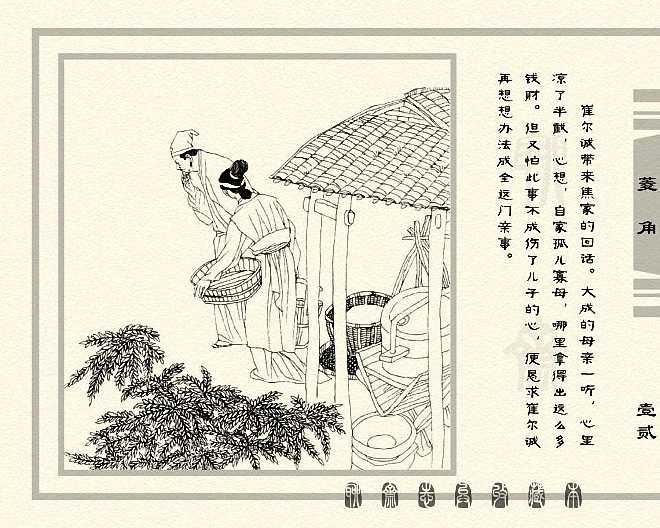 崔尔诚带来焦家的回话。大成的母亲一听，心里
凉了半截，心想，自家孤儿寡母，哪里拿得出这么多
钱财。但又怕此事不成伤了儿子的心，便恳求崔尔诚
再想想办法成全这门亲事。
菱角
壹贰